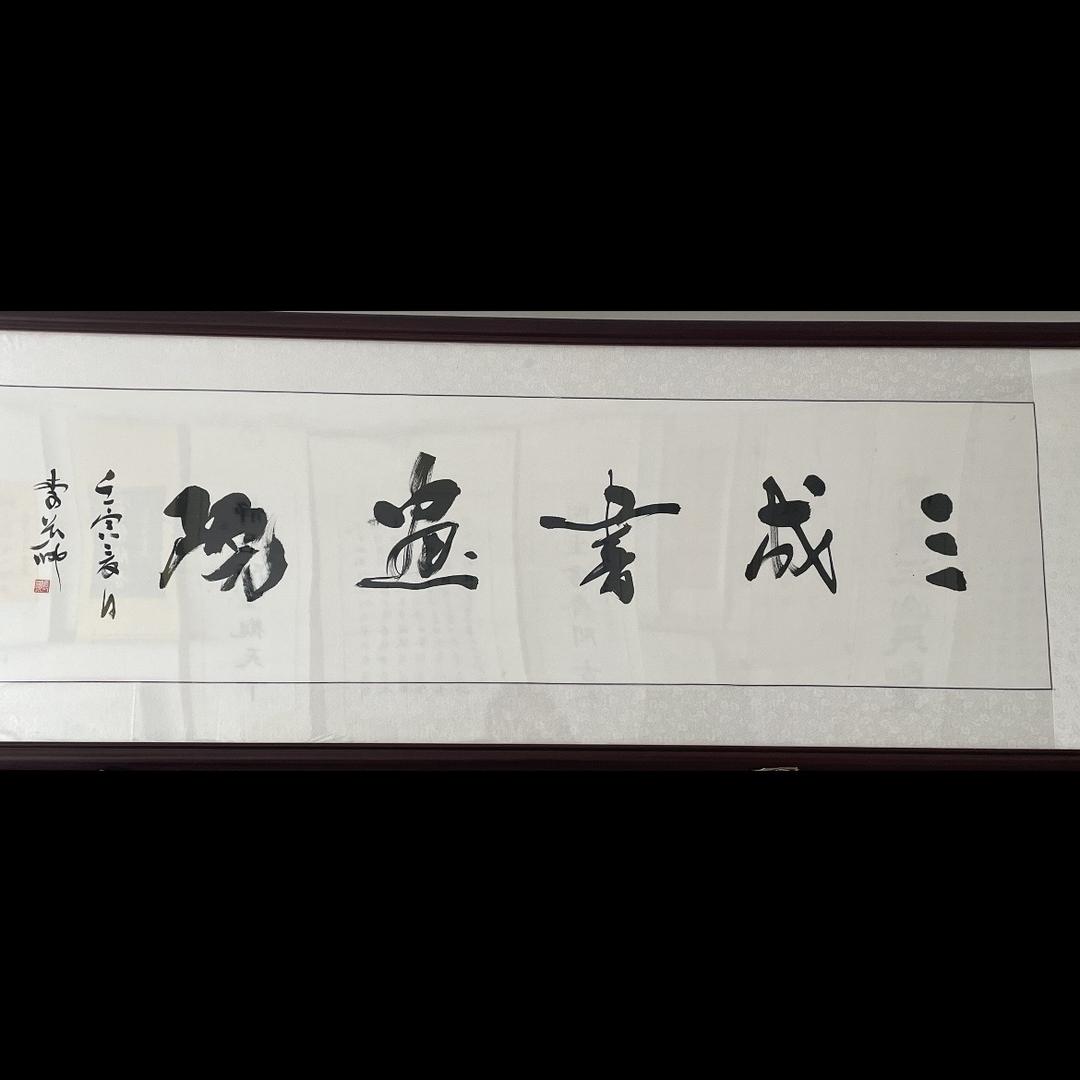 三成書畫院
壬寅夏月